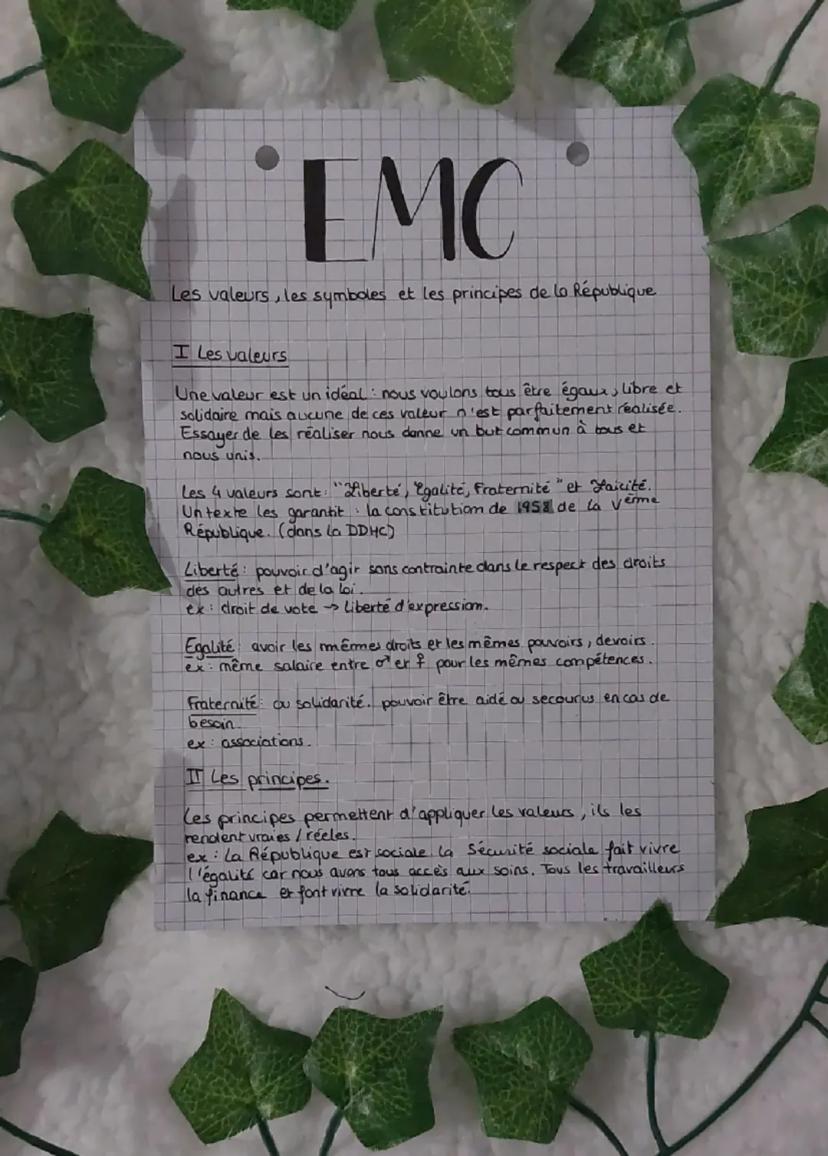 EMC
Les valeurs, les symboles et les principes de la République
I Les valeurs
Une valeur est un idéal : nous voulons tous être égaux, libre et
solidaire mais aucune de ces valeur n'est parfaitement réalisée.
Essayer de les réaliser nous donne un but commun à tous et
nous unis.
Les 4 valeurs sont : "Liberté, Égalité, Fraternité" et Laïcité.
Un texte les garantit : la constitution de 1958 de la Vème
République. (dans la DDHC)
Liberté : pouvoir d'agir sans contrainte dans le respect des droits
des autres et de la loi.
ex : droit de vote → liberté d'expression.
Egalité : avoir les mêmes droits et les mêmes pouvoirs, devoirs.
ex : même salaire entre ♂ et ♀ pour les mêmes compétences.
Fraternité : ou solidarité. pouvoir être aidé ou secourus en cas de
besoin.
ex : associations.
II Les principes.
Les principes permettent d'appliquer les valeurs, ils les
rendent vraies / réeles.
ex : la République est sociale. la Sécurité sociale fait vivre
l'égalité car nous avons tous accès aux soins. Tous les travailleurs
la finance et font vivre la solidarité.